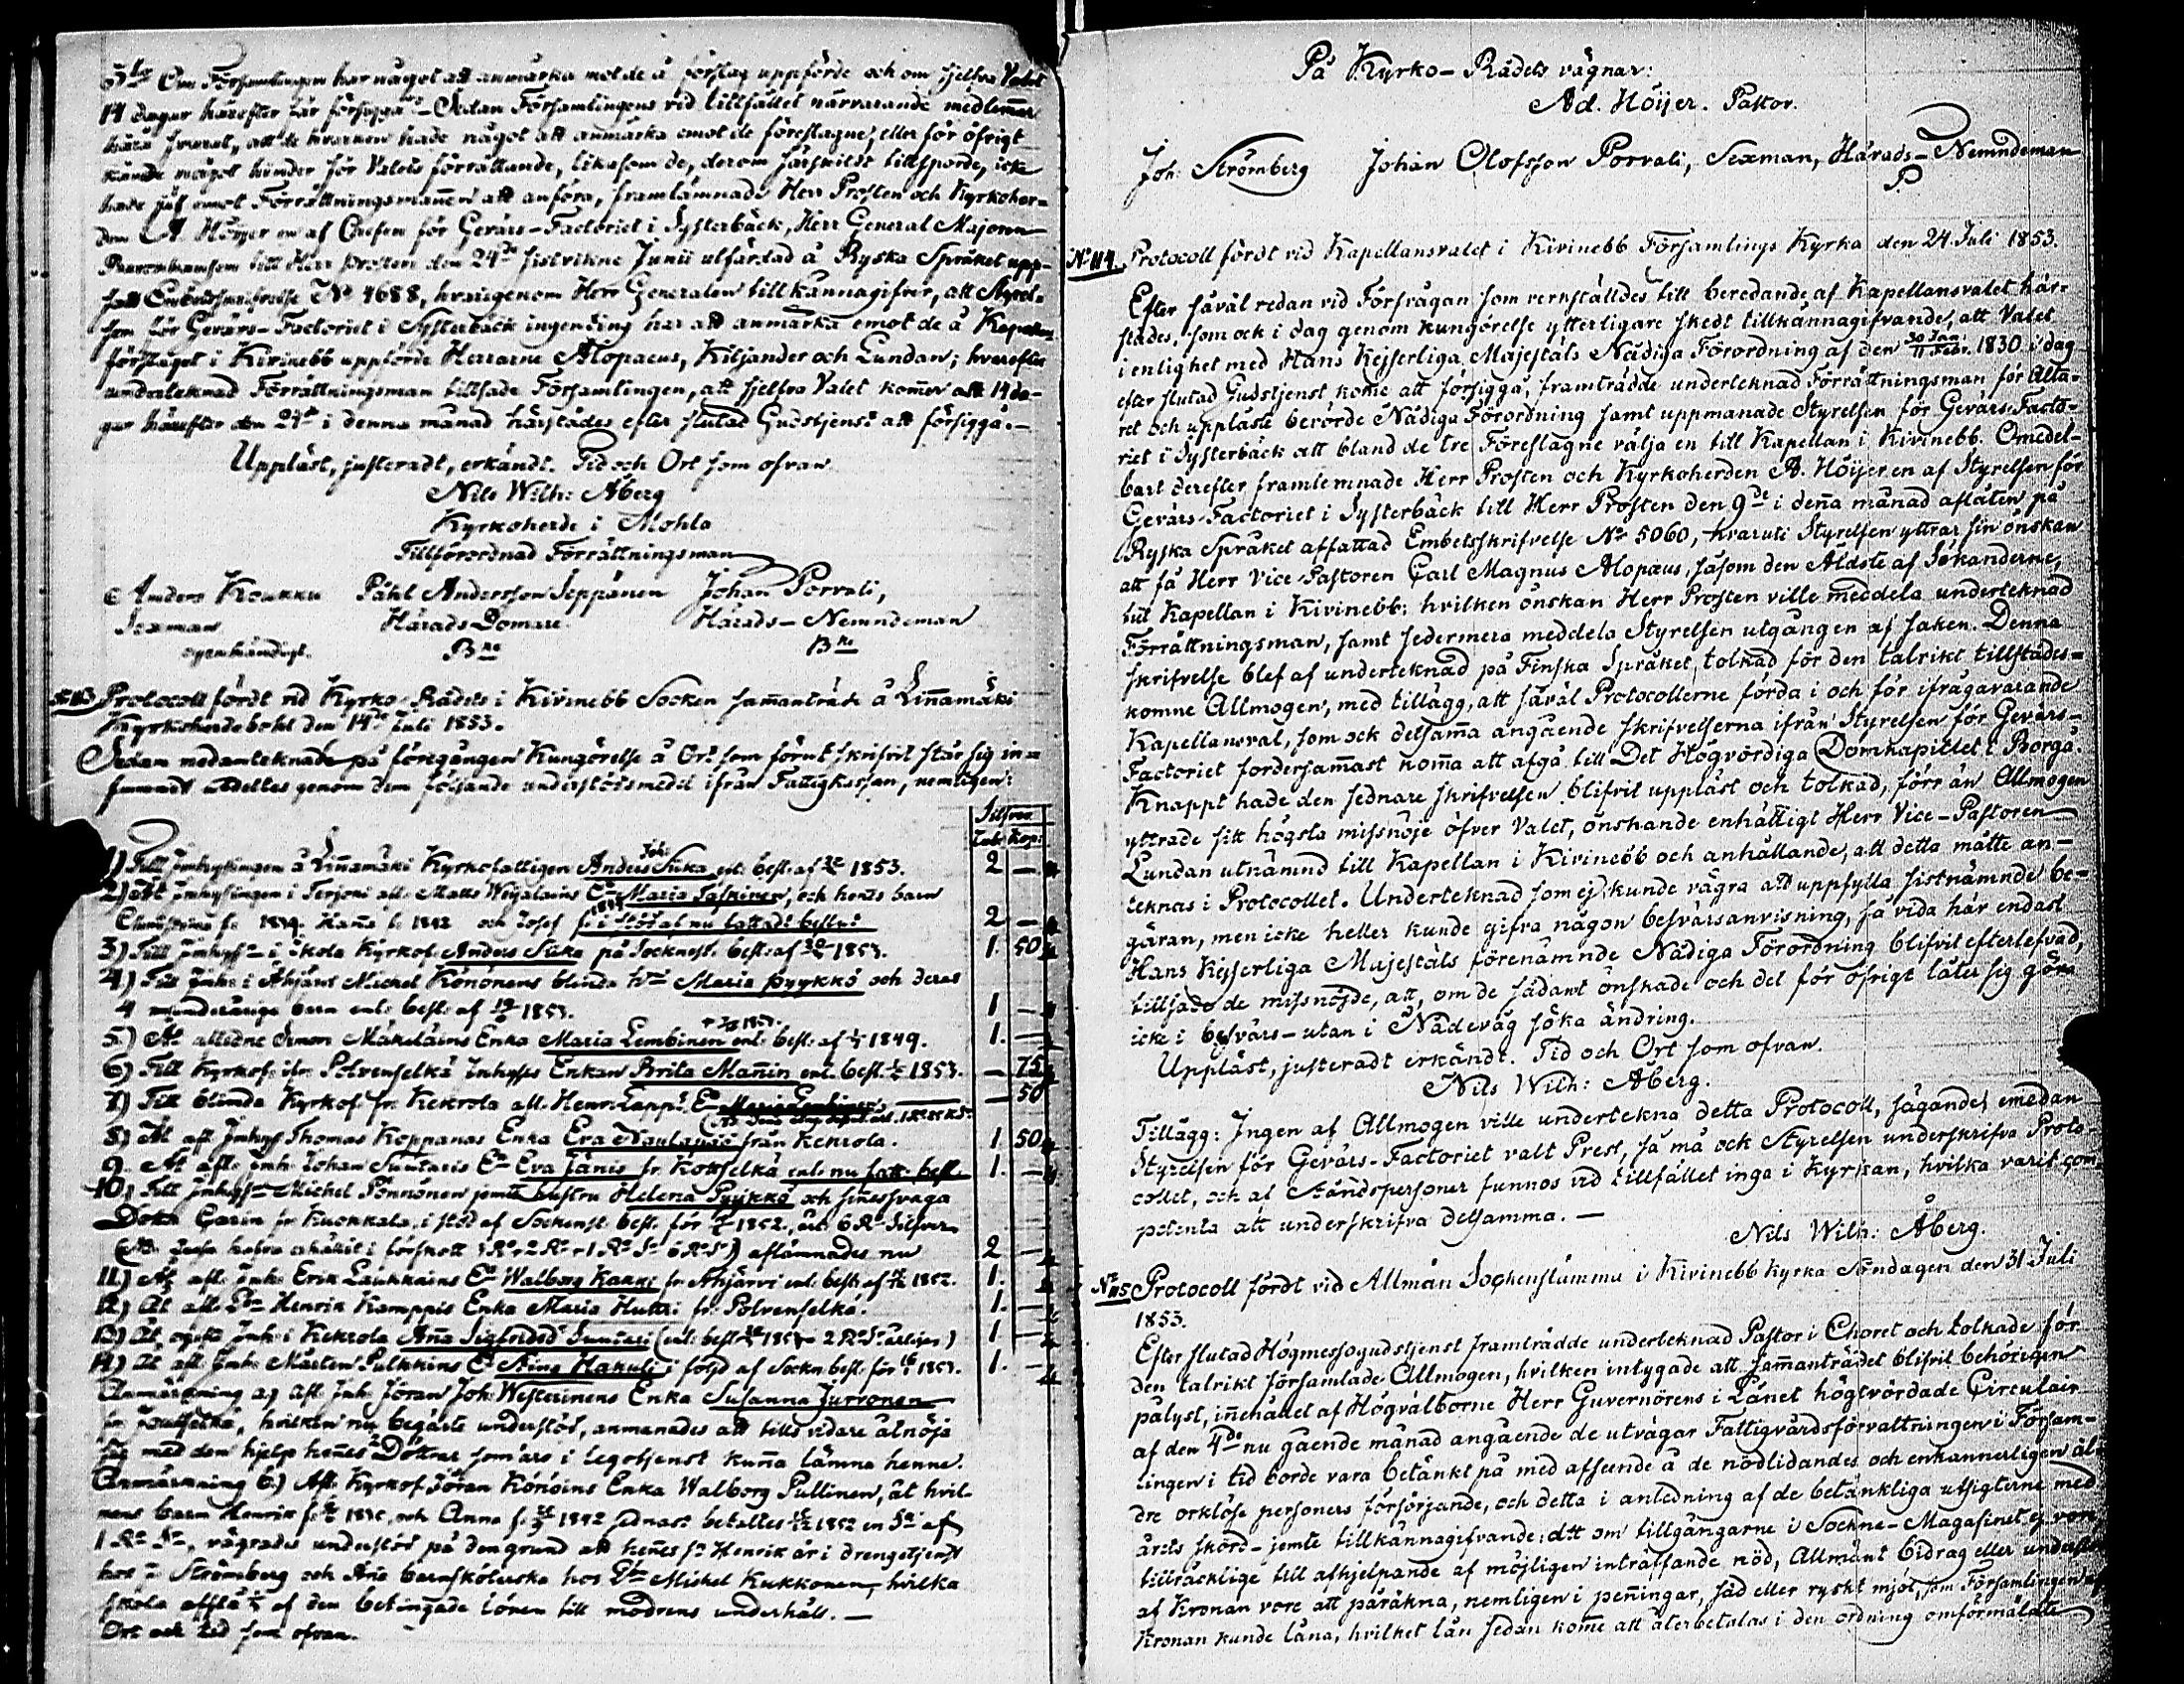 5te Om Församlingen har något att anmärka mot de å förslag uppförde och om sjelfva Valet
14 dagar härefter får försiggå? – Sedan Församlingens vid tillfället närvarande medlemmar
härå svarat, att de hvarken hade något att anmärka emot de föreslagne, eller för öfrigt
kände något hinder för Valets förrättande, likasom de, derom särskildt tillsporde, icke
hade jäf emot Förrättningsmannen att anföra, framlämnade Herr Prosten och Kyrkoher=
den A. Höijer en af Chefen för Gevärs-Factoriet i Systerbäck, Herr General Majoren
till Herr Prosten den 24de sistvikne Junii utfärdad å Ryska Språket upp=
satt Embetsskrifvelse No 4688, hvarigenom Herr Generalen tillkännagifver, att Styrel=
sen för Gevärs-Factoriet i Systerbäck ingenting har att anmärka emot de å Kapellans
förslaget i Kivinebb uppförde Herrarne Alopaeus, Kiljander och Lundan; hvarefter
undertecknad Förrättningsman tillsade Församlingen, att sjelfva Valet kommer att 14 da=
gar härefter den 24de i denna månad härstädes efter slutad Gudstjenst att försiggå. –
Uppläst, justeradt, erkändt. Tid och Ort som ofvan
Nils Wilh: Åberg
Kyrkoherde i Mohla
Tillförordnad Förrättningsman
Anders Koukku Påhl Andersson Seppänen Johan Porvali,
Sexman Härads-Domare Härads-Nemndeman
egenhändigt. Bne Bne
No 113 Protocoll fördt vid Kyrko-Rådets i Kivinebb Socken sammanträde å Linnamäki
Kyrkoherdebohl den 14de Juli 1853.
Sedan nedantecknade på föregången Kungörelse å Ort som förut skrifvit står sig in=
funnit utdeltes genom dem följande understödsmedel ifrån Fattigkassan, nemligen:
Silfver
Rub: Kop:
1) Till Inhysingen å Linnamäki Kyrkofattigen Anders Joh: Suka enl. besl: af 1853. 2 –
2) Åt Inhysingen i Terjoki afl. Matts Enka Maria Taskinen, och hennes barn
Christina f. 1839. Hanna f. 1842 och Josef f. i stöd af nu fattadt beslut 2 –
3) Till Inhyss i Skola Kyrkof. Anders Suka på Socknest. besl: af 1853. 1. 50
4) Till Inh: i Ahjärvi Michel Könönens blinda h:u Maria Pyykkö och deras
4 minderåriga barn enl. besl. af 1853. 1 –
5) Åt aflidne Simon Mäkeläins Enka Maria Lembinen enl: besl. af 1849. 1. –
6) Till Kyrkof: ifr. Polvenselkä Inhyses Enkan Brita Mannin enl. besl. 1853. – 75
7) Till blinda Kyrkof. fr. Kekrola afl. Henr: Lapp. – 50
8) Åt afl. Inhys Thomas Koppanas Enka Eva Naulapää från Kekrola. 1 50
9. Åt afl. Inh: Johan Suutaris Ea Eva Jänis fr. Kottselkä enl: nu fatt. besl. 1. –
10) Till Inhyss Michel Pönnönen jemte hustru Helena Pyykkö och sinnessvaga
Dotter Carin fr. Kuokkala, i stöd af Sockenst. besl. för 1852, åt 6 R. Silfver
aflämnades nu 2 –
11) Åt afl. Inh: Erik Laukkains Ea Walborg Kakki fr. Ahjärvi enl. besl. af 1852. 1. –
12) Åt afl. Henrik Kamppis Enka Maria Huttri fr. Polvenselkä. 1. –
13) Åt ogifta Inh: i Kekrola Anna Sigfridsdr Suutari (enl: besl. 1853 2 R. S. årligen) 1 –
14) Åt afl. Inh: Mårten Pulkkins Ea Stina Hakuli i följd af Sockn. besl. för 1853. 1. –
Anmärkning a) Afl. Inh: Jöran Joh: Westerinens Enka Susanna Jurvonen
fr. Joutselkä, hvilken nu begärte understöd, anmanades att tills vidare åtnöja
sig med den hjelp hennes 2 Döttrar som äro i legotjenst kunna lämna henne.
Anmärkning b.) Afl. Kyrkof. Jöran Könöins Enka Walborg Pullinen, åt hvil-
kens barn Henrik f. och Anna f. 1842 sednast betaltes 1852 en
1 Rl. Sr, vägrades understöd på den grund att hennes son Henrik är i drengetjenst
hos Strömberg och Anna barnsköterska hos Michel Kukkonen, hvilka
skola afstå ½ af den betingade lönen till modrens underhåll. –
Ort och tid som ofvan.
På Kyrko-Rådets vägnar:
Ad. Höijer. Pastor.
Joh: Strömberg Johan Olofsson Porvali, Sexman, Härads-Nemndeman
P
No 114. Protocoll fördt vid Kapellansvalet i Kivinebb Församlings Kyrka den 24 Juli 1853.
Efter såväl redan vid Förfrågan som vernställdes till beredande af Kapellansvalet här=
städes, som ock i dag genom kungörelse ytterligare skedt tillkännagifvande, att Valet
i enlighet med Hans Kejserliga Majestäts Nådiga Förordning af den 30 Jan:/11 Febr. 1830 i dag
efter slutad Gudstjenst komme att försiggå, framträdde undertecknad Förrättningsman för Alta=
ret och uppläste berörde Nådiga Förordning samt uppmanade Styrelsen för Gevärs-Facto=
riet i Systerbäck att bland de tre Föreslagne välja en till Kapellan i Kivinebb. Omedel=
bart derefter framlemnade Herr Prosten och Kyrkoherden A. Höijer en af Styrelsen för
Gevärs-Factoriet i Systerbäck till Herr Prosten den 9de i denna månad aflåten på
Ryska Språket affattad Embetsskrifvelse No 5060, hvaruti Styrelsen yttrar sin önskan
att få Herr Vice Pastoren Carl Magnus Alopæus, såsom den Äldste af Sökanderne,
till Kapellan i Kivinebb; hvilken önskan Herr Prosten ville meddela underteknad
Förrättningsman, samt sedermera meddela Styrelsen utgången af saken. Denna
skrifvelse blef af underteknad på Finska Språket, tolkad för den talrikt tillstädes=
komne Allmogen, med tillägg, att såväl Protocollerne förda i och för ifrågavarande
Kapellansval, som ock detsamma angående skrifvelserna ifrån Styrelsen för Gevärs-
Factoriet fordersammast komma att afgå till Det Högvördiga Domkapitlet i Borgå.
Knappt hade den sednare skrifvelsen blifvit uppläst och tolkad, förr än Allmogen
yttrade sitt högsta missnöje öfver Valet, önskande enhälligt Herr Vice-Pastoren
Lundan utnämnd till Kapellan i Kivinebb och anhållande, att detta måtte an-
teknas i Protocollet. Underteknad som ej kunde vägra att uppfylla sistnämnde be-
gäran, men icke heller kunde gifva någon besvärsanvisning, så vida här endast
Hans Kejserliga Majestäts förenämnde Nådiga Förordning blifvit efterlefvad,
tillsade de missnöjde, att, om de sådant önskade och det för öfrigt låter sig göra
icke i besvärs-utan i Nådeväg söka ändring.
Uppläst, justeradt erkändt. Tid och Ort som ofvan.
Nils Wilh: Åberg.
Tillägg: Ingen af Allmogen ville underteкna detta Protocoll, sägande, emedan
Styrelsen för Gevärs-Factoriet valt Prest, så må ock Styrelsen underskrifva Proto-
collet, och af Ståndspersoner funnos vid tillfället inga i Kyrkan, hvilka varit com-
petenta att underskrifva detsamma. –
Nils Wilh: Åberg.
No 115 Protocoll fördt vid Allmän Sockenstämma i Kivinebb Kyrka Söndagen den 31 Juli
1853.
Efter slutad Högmessogudstjenst framträdde underteknad Pastor i Choret och tolkade för
den talrikt församlade Allmogen, hvilken intygade att sammanträdet blifvit behörigen
pålyst, innehållet af Högvälborne Herr Guvernörens i Länet högtvördade Circulair
af den 4de nu gående månad angående de utvägar Fattigvårdsförvaltningen i Försam-
lingen i tid borde vara betänkt på med afseende å de nödlidandes och enkannerligen äl-
dre orklöse personers försörjande, och detta i anledning af de betänkliga utsigterne med
årets skörd – jemte tillkännagifvande, att om tillgångarne i Sockne-Magasinet ej vore
tillräcklige till afhjelpande af möjligen inträffande nöd, Allmänt bidrag eller understöd
af Kronan vore att påräkna, nemligen i penningar, säd eller ryskt mjöl, som Församlingen af
Kronan kunde låna, hvilket lån sedan komme att återbetalas i den ordning omförmälde